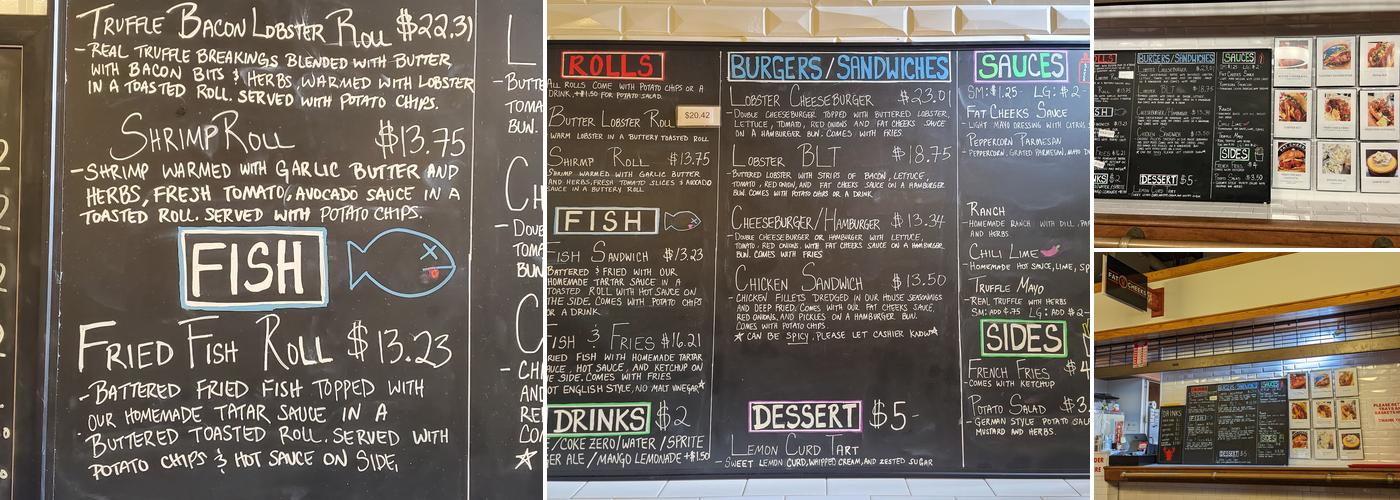 TRUFFLE BACON LOBSTER ROLL $22.31
-REAL TRUFFLE BREAKINGS BLENDED WITH BUTTER,
WITH BACON BITS & HERBS, WARMED WITH LOBSTER
IN A TOASTED ROLL. SERVED WITH POTATO CHIPS.
SHRIMP ROLL $13.75
-SHRIMP WARMED WITH GARLIC BUTTER AND
HERBS, FRESH TOMATO, AVOCADO SAUCE IN A
TOASTED ROLL. SERVED WITH POTATO CHIPS.
FISH
FRIED FISH ROLL $13.23
-BATTERED FRIED FISH TOPPED WITH
OUR HOMEMADE TATAR SAUCE IN A
BUTTERED TOASTED ROLL. SERVED WITH
POTATO CHIPS & HOT SAUCE ON SIDE,
ROLLS
ALL ROLLS COME WITH POTATO CHIPS OR A
DRINK, +$1.50 FOR POTATO SALAD.
BUTTER LOBSTER ROLL $20.42
WARM LOBSTER IN A BUTTERY TOASTED ROLL
SHRIMP ROLL $13.75
SHRIMP WARMED WITH GARLIC BUTTER
AND HERBS, FRESH TOMATO SLICES & AVOCADO
SAUCE IN A BUTTERY ROLL
FISH
FISH SANDWICH $13.23
BATTERED & FRIED WITH OUR
HOMEMADE TARTAR SAUCE IN A
TOASTED ROLL WITH HOT SAUCE ON
THE SIDE. COMES WITH POTATO CHIPS
OR A DRINK
FISH & FRIES $16.21
FRIED FISH WITH HOMEMADE TARTAR
SAUCE, HOT SAUCE, AND KETCHUP ON
SIDE. COMES WITH FRIES
NOT ENGLISH STYLE, NO MALT VINEGAR
DRINKS $2
/COKE ZERO/WATER/SPRITE
GER ALE/MANGO LEMONADE +$1.50
BURGERS/SANDWICHES
LOBSTER CHEESEBURGER $23.01
-DOUBLE CHEESEBURGER TOPPED WITH BUTTERED LOBSTER,
LETTUCE, TOMATO, RED ONIONS AND FAT CHEEKS SAUCE
ON A HAMBURGER BUN. COMES WITH FRIES
LOBSTER BLT $18.75
-BUTTERED LOBSTER WITH STRIPS OF BACON, LETTUCE,
TOMATO, RED ONION, AND FAT CHEEKS SAUCE ON A HAMBURGER
BUN. COMES WITH POTATO CHIPS OR A DRINK
CHEESEBURGER/HAMBURGER $13.34
-DOUBLE CHEESEBURGER OR HAMBURGER WITH LETTUCE,
TOMATO, RED ONIONS, WITH FAT CHEEKS SAUCE ON A HAMBURGER
BUN. COMES WITH FRIES
CHICKEN SANDWICH $13.50
-CHICKEN FILLETS DREDGED IN OUR HOUSE SEASONINGS
AND DEEP FRIED. COMES WITH OUR FAT CHEEKS SAUCE,
RED ONIONS, AND PICKLES ON A HAMBURGER BUN.
COMES WITH POTATO CHIPS
CAN BE SPICY, PLEASE LET CASHIER KNOW
DESSERT $5-
LEMON CURD TART
-SWEET LEMON CURD, WHIPPED CREAM, AND ZESTED SUGAR
SAUCES
SM: $1.25- LG: $2-
FAT CHEEKS SAUCE
-LIGHT MAYO DRESSING WITH CITRUS
PEPPERCORN PARMESAN
-PEPPERCORN, GRATED PARMESAN, MAYO
RANCH
-HOMEMADE RANCH WITH DILL,
AND HERBS
CHILI LIME
-HOMEMADE HOT SAUCE, LIME,
TRUFFLE MAYO
-REAL TRUFFLE WITH HERBS
SM: ADD $.75 LG: ADD $2-
SIDES
FRENCH FRIES $4
-COMES WITH KETCHUP
POTATO SALAD $3.
-GERMAN STYLE POTATO SALAD
MUSTARD AND HERBS.
BURGERS/SANDWICHES
SAUCES
SIDES
DESSERT $5-
LEMON CURD TART
FAT CHEEKS
DRINKS